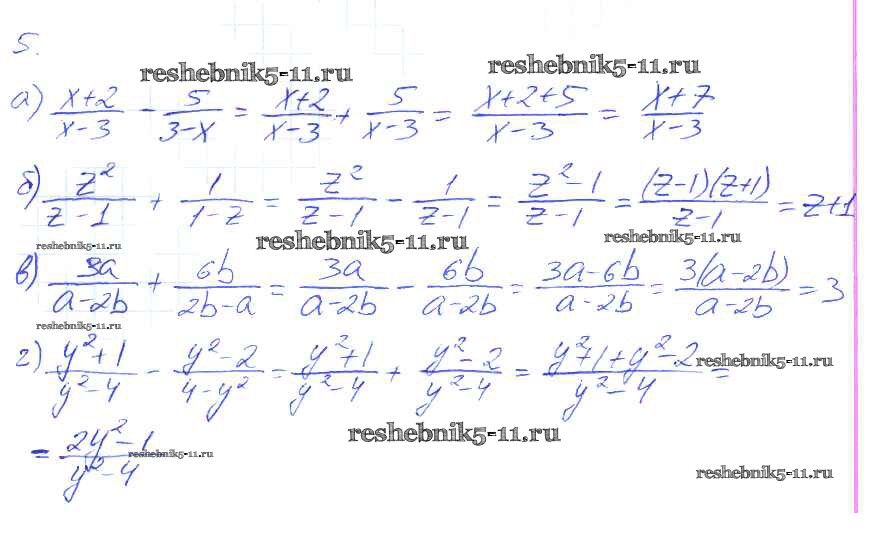 5.
reshebnik5-11.ru reshebnik5-11.ru
а) (x+2)/(x-3) - 5/(3-x) = (x+2)/(x-3) + 5/(x-3) = (x+2+5)/(x-3) = (x+7)/(x-3)
б) z²/(z-1) + 1/(1-z) = z²/(z-1) - 1/(z-1) = (z²-1)/(z-1) = (z-1)(z+1)/(z-1) = z+1
reshebnik5-11.ru reshebnik5-11.ru reshebnik5-11.ru
в) 3a/(a-2b) + 6b/(2b-a) = 3a/(a-2b) - 6b/(a-2b) = (3a-6b)/(a-2b) = 3(a-2b)/(a-2b) = 3
reshebnik5-11.ru
г) (y²+1)/(y²-4) - (y²-2)/(4-y²) = (y²+1)/(y²-4) + (y²-2)/(y²-4) = (y²+1+y²-2)/(y²-4) =
reshebnik5-11.ru
reshebnik5-11.ru
= (2y²-1)/(y²-4)
reshebnik5-11.ru
reshebnik5-11.ru